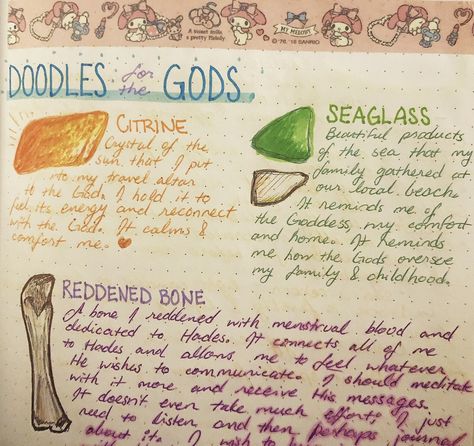 A sweet smile &
a pretty Melody
MY MELODY
© '76, '18 SANRIO
DOODLES for the GODS.
CITRINE
Crystal of the
sun that I put
into my travel altar
to the God. I hold it to
feel its energy and reconnect
with the God. It calms &
comforts me.
SEAGLASS
Beautiful products
of the sea that my
family gathered at
our local beach.
It reminds me of
the Goddess, my comfort
and home. It reminds
me how the Gods oversee
my family & childhood.
REDDENED BONE
A bone I reddened with menstrual blood and
dedicated to Hades. It connects all of me
to Hades and allows me to feel whatever
He wishes to communicate. I should meditate
with it more and receive His messages.
It doesn't even take much effort, I just
need to listen, and then perhaps journal
about it. I wish to